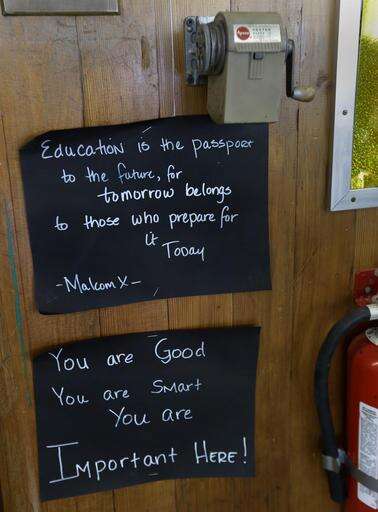 Education is the passport
to the future, for
tomorrow belongs
to those who prepare for
it
Today
-Malcom X-
You are Good
You are Smart
You are
Important Here!